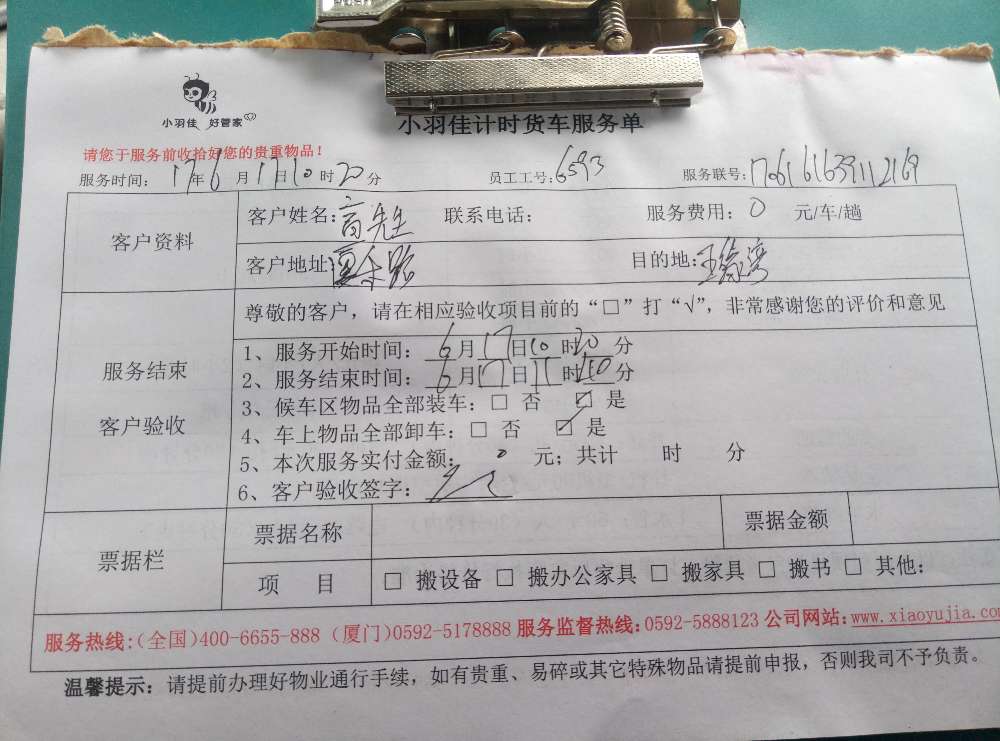 小羽佳 好管家
小羽佳计时货车服务单
请您于服务前收拾好您的贵重物品！
服务时间： 17年6月17日10时20分 员工工号：6593 服务联号：
客户资料
客户姓名：高先生 联系电话： 服务费用：0 元/车/趟
客户地址： 目的地：
尊敬的客户，请在相应验收项目前的“□”打“√”，非常感谢您的评价和意见
服务结束
客户验收
1、服务开始时间：6月17日10时20分
2、服务结束时间：6月17日11时40分
3、候车区物品全部装车：□ 否 ☑ 是
4、车上物品全部卸车：□ 否 ☑ 是
5、本次服务实付金额：0 元；共计 时 分
6、客户验收签字：
票据栏
票据名称 票据金额
项 目 □ 搬设备 □ 搬办公家具 □ 搬家具 □ 搬书 □ 其他：
服务热线：(全国)400-6655-888 (厦门)0592-5178888 服务监督热线：0592-5888123 公司网站：www.xiaoyujia.co
温馨提示：请提前办理好物业通行手续，如有贵重、易碎或其它特殊物品请提前申报，否则我司不予负责。